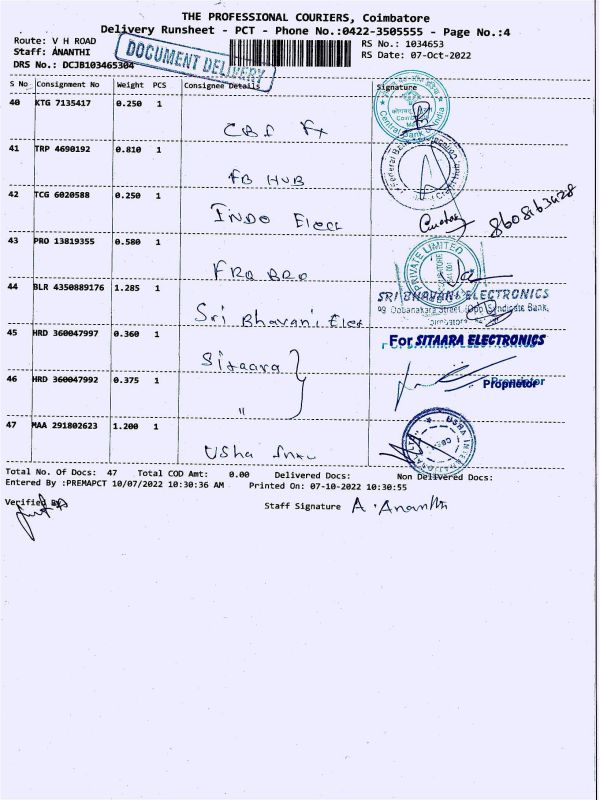 THE PROFESSIONAL COURIERS, Coimbatore
Delivery Runsheet - PCT - Phone No.:0422-3505555 - Page No.:4
Route: V H ROAD
RS No.: 1034653
Staff: ANANTHI
RS Date: 07-Oct-2022
DRS No.: DCJB103465304
DOCUMENT DELIVERY
S No Consignment No Weight PCS Consignee Details Signature
40 KTG 7135417 0.250 1
Central Bank India
41 TRP 4690192 0.810 1 FB HUB
42 TCG 6020588 0.250 1 INDO Elect
8608163428
43 PRO 13819355 0.580 1
PRIVATE LIMITED
44 BLR 4350889176 1.285 1 Sri Bhavani Elec
SRI BHAVANI ELECTRONICS
Street, Opp. Syndicate Bank,
45 HRD 360047997 0.360 1 Sitaara
For SITAARA ELECTRONICS
46 HRD 360047992 0.375 1 "
Proprietor
47 MAA 291802623 1.200 1 Usha
Total No. Of Docs: 47 Total COD Amt: 0.00 Delivered Docs: Non Delivered Docs:
Entered By :PREMAPCT 10/07/2022 10:30:36 AM Printed On: 07-10-2022 10:30:55
Verified By
Staff Signature A. Ananthi